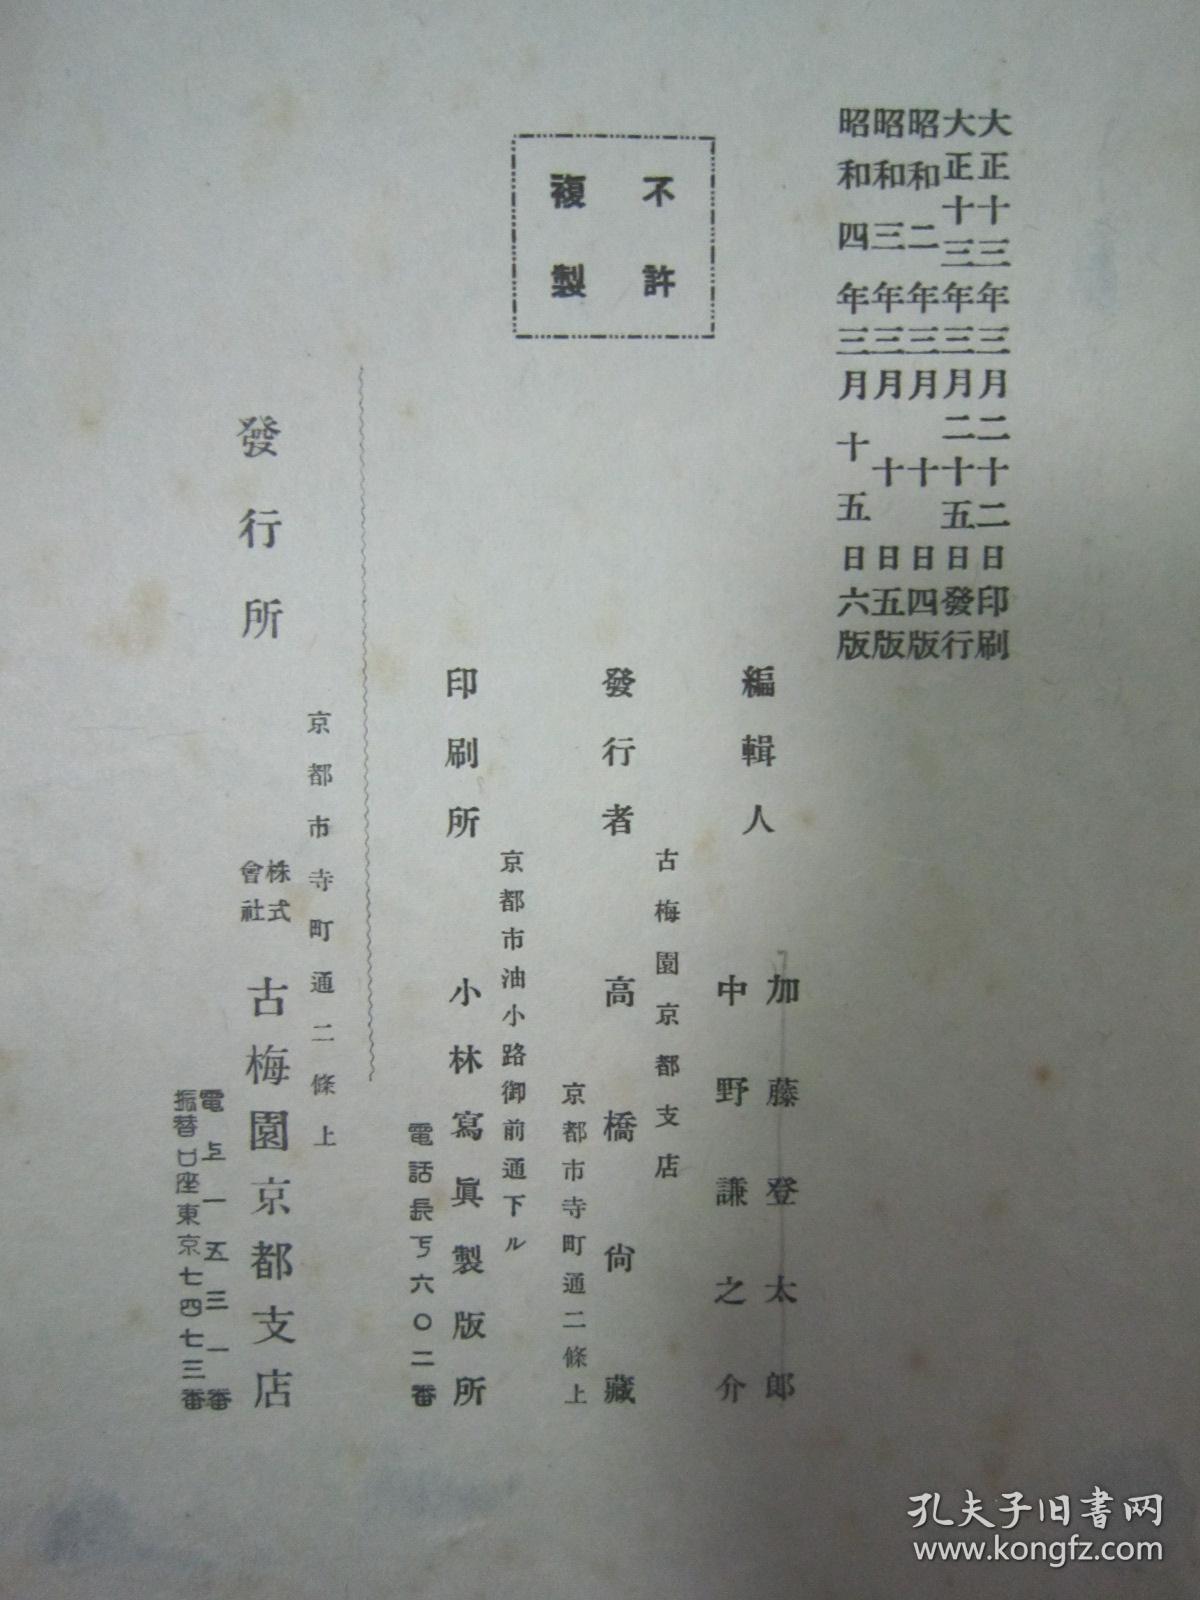 大正十三年三月二十二日印刷
大正十三年三月二十五日發行
昭和二年三月十日四版
昭和三年三月十日五版
昭和四年三月十五日六版
不許
複製
編輯人
加藤登太郎
中野謙之介
古梅園京都支店
發行者
高橋尙藏
京都市寺町通二條上
京都市油小路御前通下ル
印刷所
小林寫眞製版所
電話長下六〇二番
京都市寺町通二條上
發行所
株式
會社
古梅園京都支店
電上一五三一番
振替口座東京七四七三番
孔夫子旧书网
www.kongfz.com